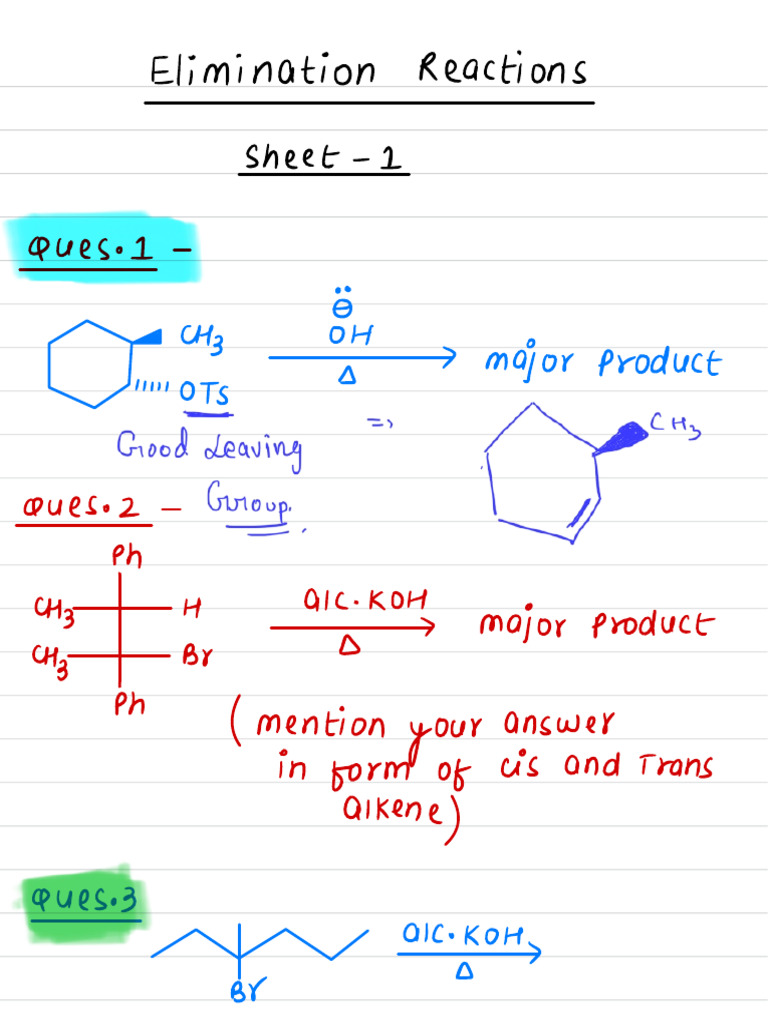 Elimination Reactions
Sheet - 1
Ques.1 -
CH3
OTs
⊖
OH
Δ
major product
Good Leaving
Group.
=>
CH3
Ques.2 -
Ph
CH3 H
CH3 Br
Ph
alc. KOH
Δ
major product
(mention your answer
in form of cis and Trans
alkene)
Ques.3
Br
alc. KOH
Δ